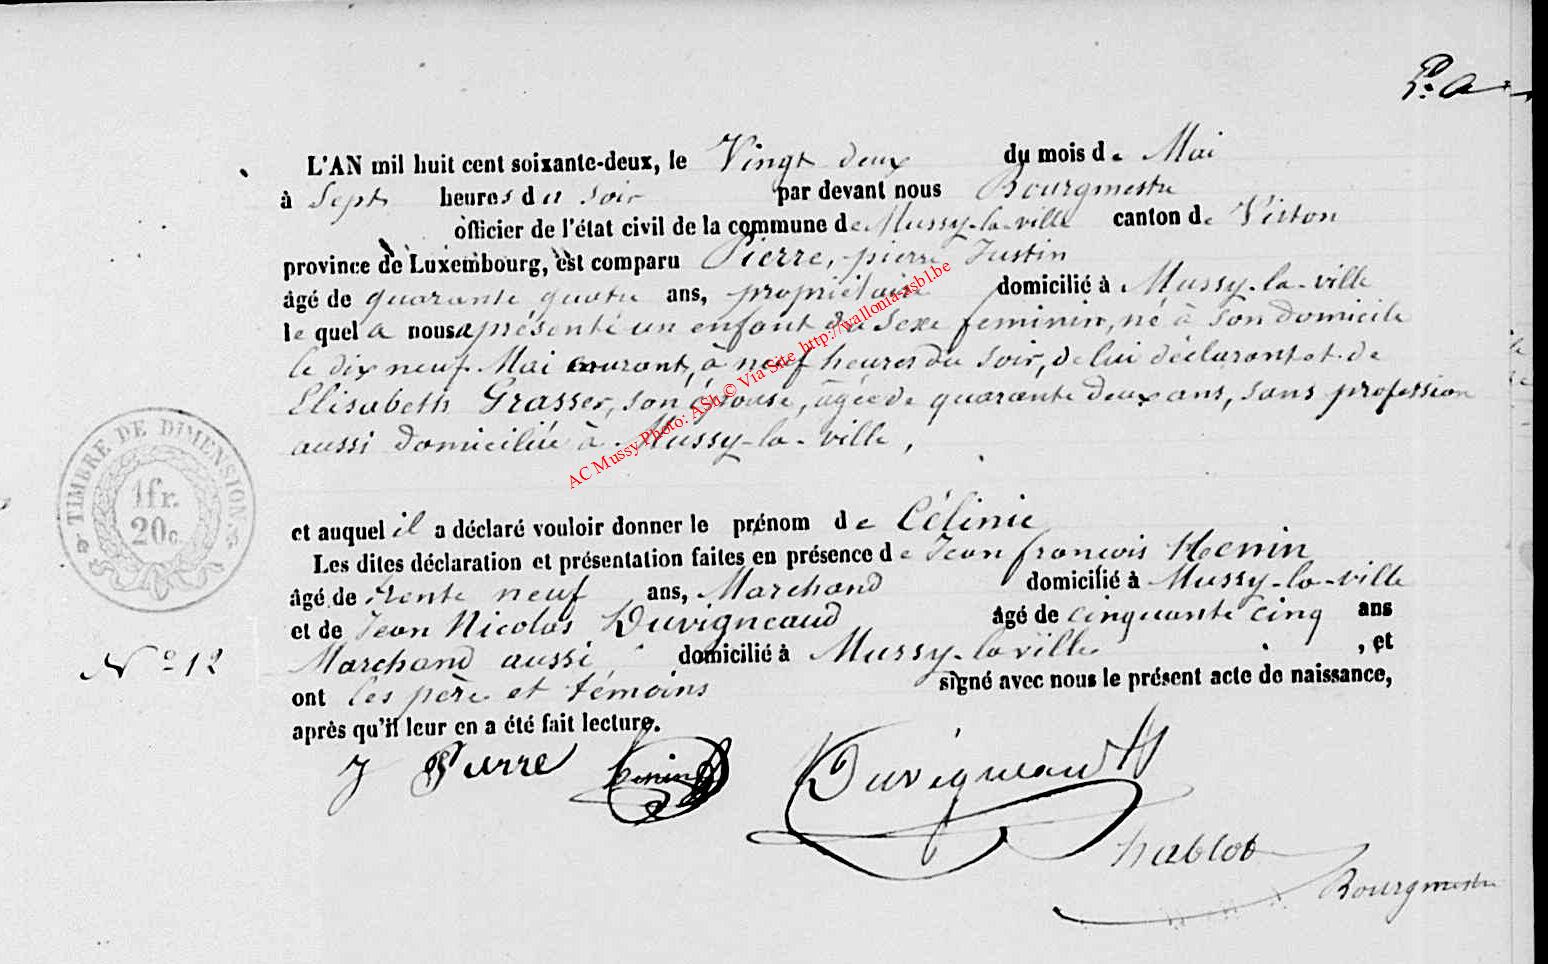 P. a
L'AN mil huit cent soixante-deux, le Vingt deux du mois de Mai
à Sept heures du soir par devant nous Bourgmestre
officier de l'état civil de la commune de Mussy-la-ville canton de Virton
province de Luxembourg, est comparu Pierre, pierre Justin
âgé de quarante quatre ans, propriétaire domicilié à Mussy-la-ville
le quel a nous a présenté un enfant du sexe feminin, né à son domicile
le dix neuf Mai courant, à neuf heures du soir, de lui déclarant et de
Elisabeth Grasser, son épouse, âgée de quarante deux ans, sans profession
aussi domiciliée à Mussy-la-ville,
et auquel il a déclaré vouloir donner le prénom de Célinie
Les dites déclaration et présentation faites en présence de Jean françois Henin
âgé de trente neuf ans, Marchand domicilié à Mussy-la-ville
et de Jean Nicolas Duvigneaud âgé de cinquante cinq ans
Marchand aussi domicilié à Mussy-la ville , et
ont les père et témoins signé avec nous le présent acte de naissance,
après qu'il leur en a été fait lecture.
TIMBRE DE DIMENSION
1fr.
20c.
N° 12
J Pierre henin Duvigneaud
hablot
Bourgmestre
AC Mussy Photo: ASh © Via Site http://wallonia-asbl.be